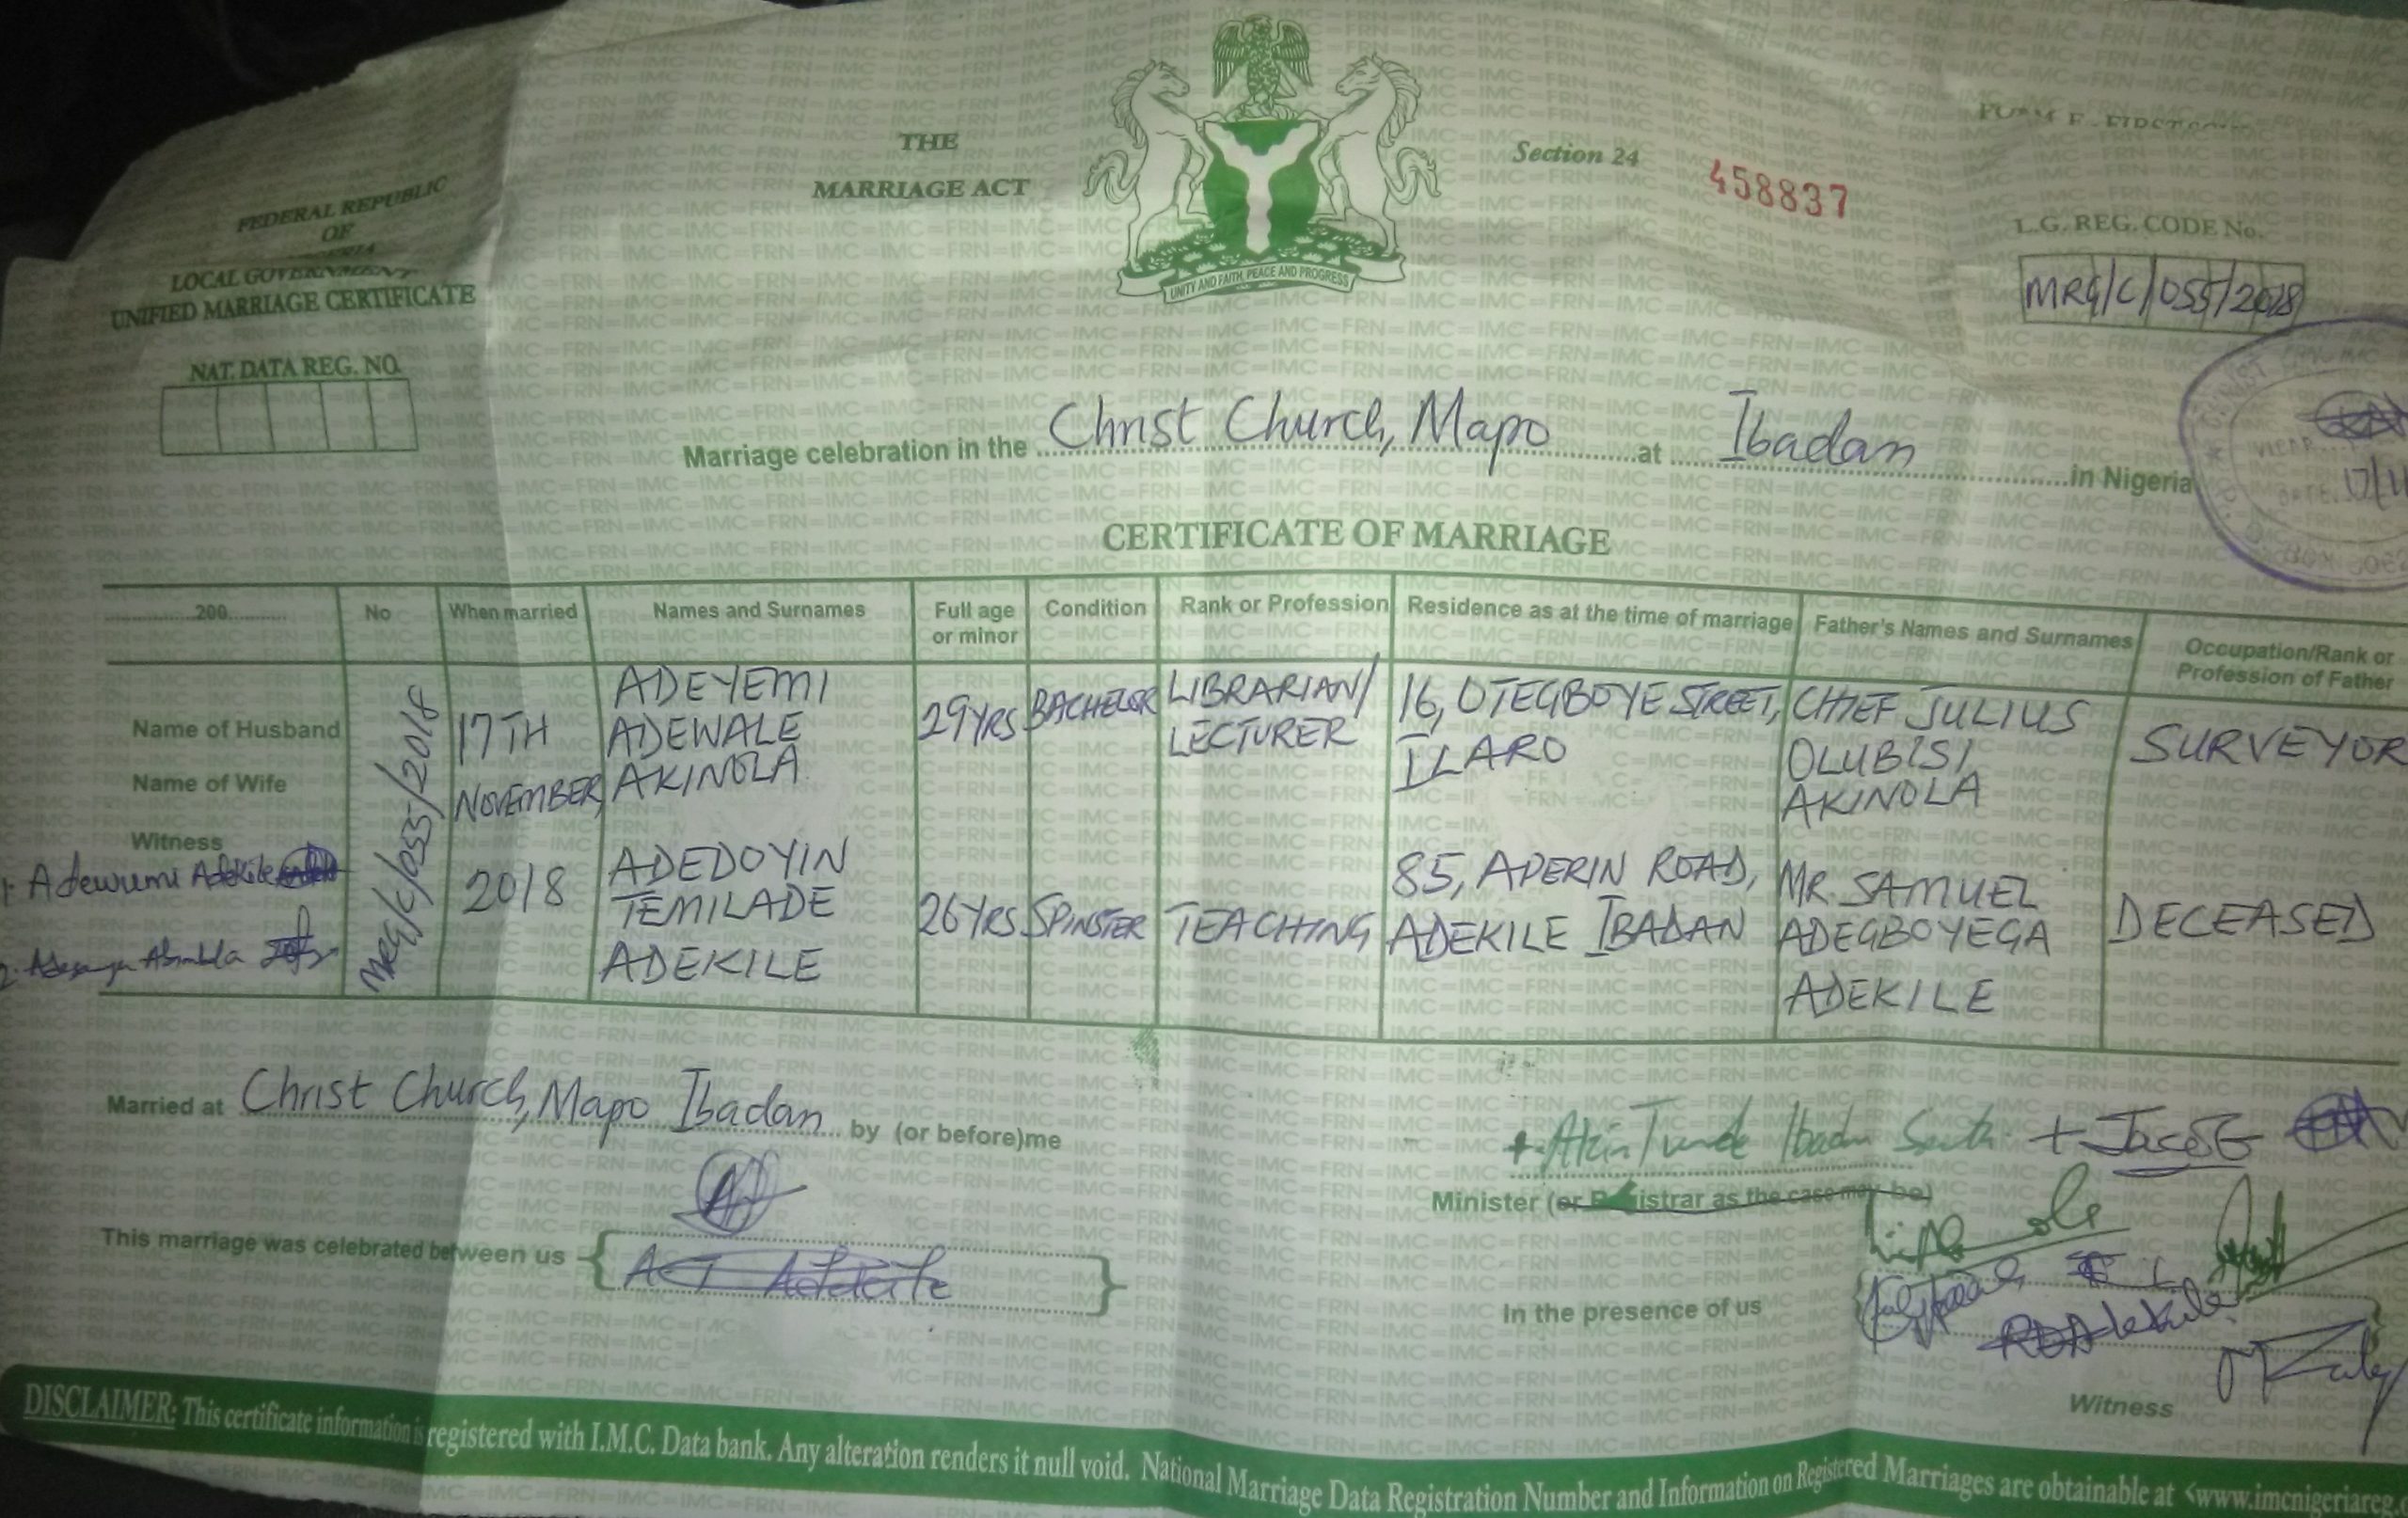 FEDERAL REPUBLIC
OF
LOCAL GOVERNMENT
UNIFIED MARRIAGE CERTIFICATE
NAT. DATA REG. NO.
THE
MARRIAGE ACT
UNITY AND FAITH, PEACE AND PROGRESS
Section 24
458837
L.G. REG. CODE No.
MRG/C/055/2018
Marriage celebration in the Christ Church, Mapo at Ibadan in Nigeria
DATE. 17/11
CERTIFICATE OF MARRIAGE
200
No
When married
Names and Surnames
Full age
or minor
Condition
Rank or Profession
Residence as at the time of marriage
Father's Names and Surnames
Occupation/Rank or
Profession of Father
Name of Husband
Name of Wife
Witness
1. Adewumi Adekile
2.
MRG/C/055/2018
17TH
NOVEMBER,
2018
ADEYEMI
ADEWALE
AKINOLA
29YRS
BACHELOR
LIBRARIAN/
LECTURER
16, OTEGBOYE STREET,
ILARO
CHIEF JULIUS
OLUBISI
AKINOLA
SURVEYOR
ADEDOYIN
TEMILADE
ADEKILE
26YRS
SPINSTER
TEACHING
85, APERIN ROAD,
ADEKILE IBADAN
MR SAMUEL
ADEGBOYEGA
ADEKILE
DECEASED
Married at Christ Church, Mapo Ibadan by (or before)me
+ Akin Tunde Ibadan South
Minister (or Registrar as the case may be)
This marriage was celebrated between us
In the presence of us
Witness
DISCLAIMER: This certificate information is registered with I.M.C. Data bank. Any alteration renders it null void. National Marriage Data Registration Number and Information on Registered Marriages are obtainable at <www.imcnigeriareg.